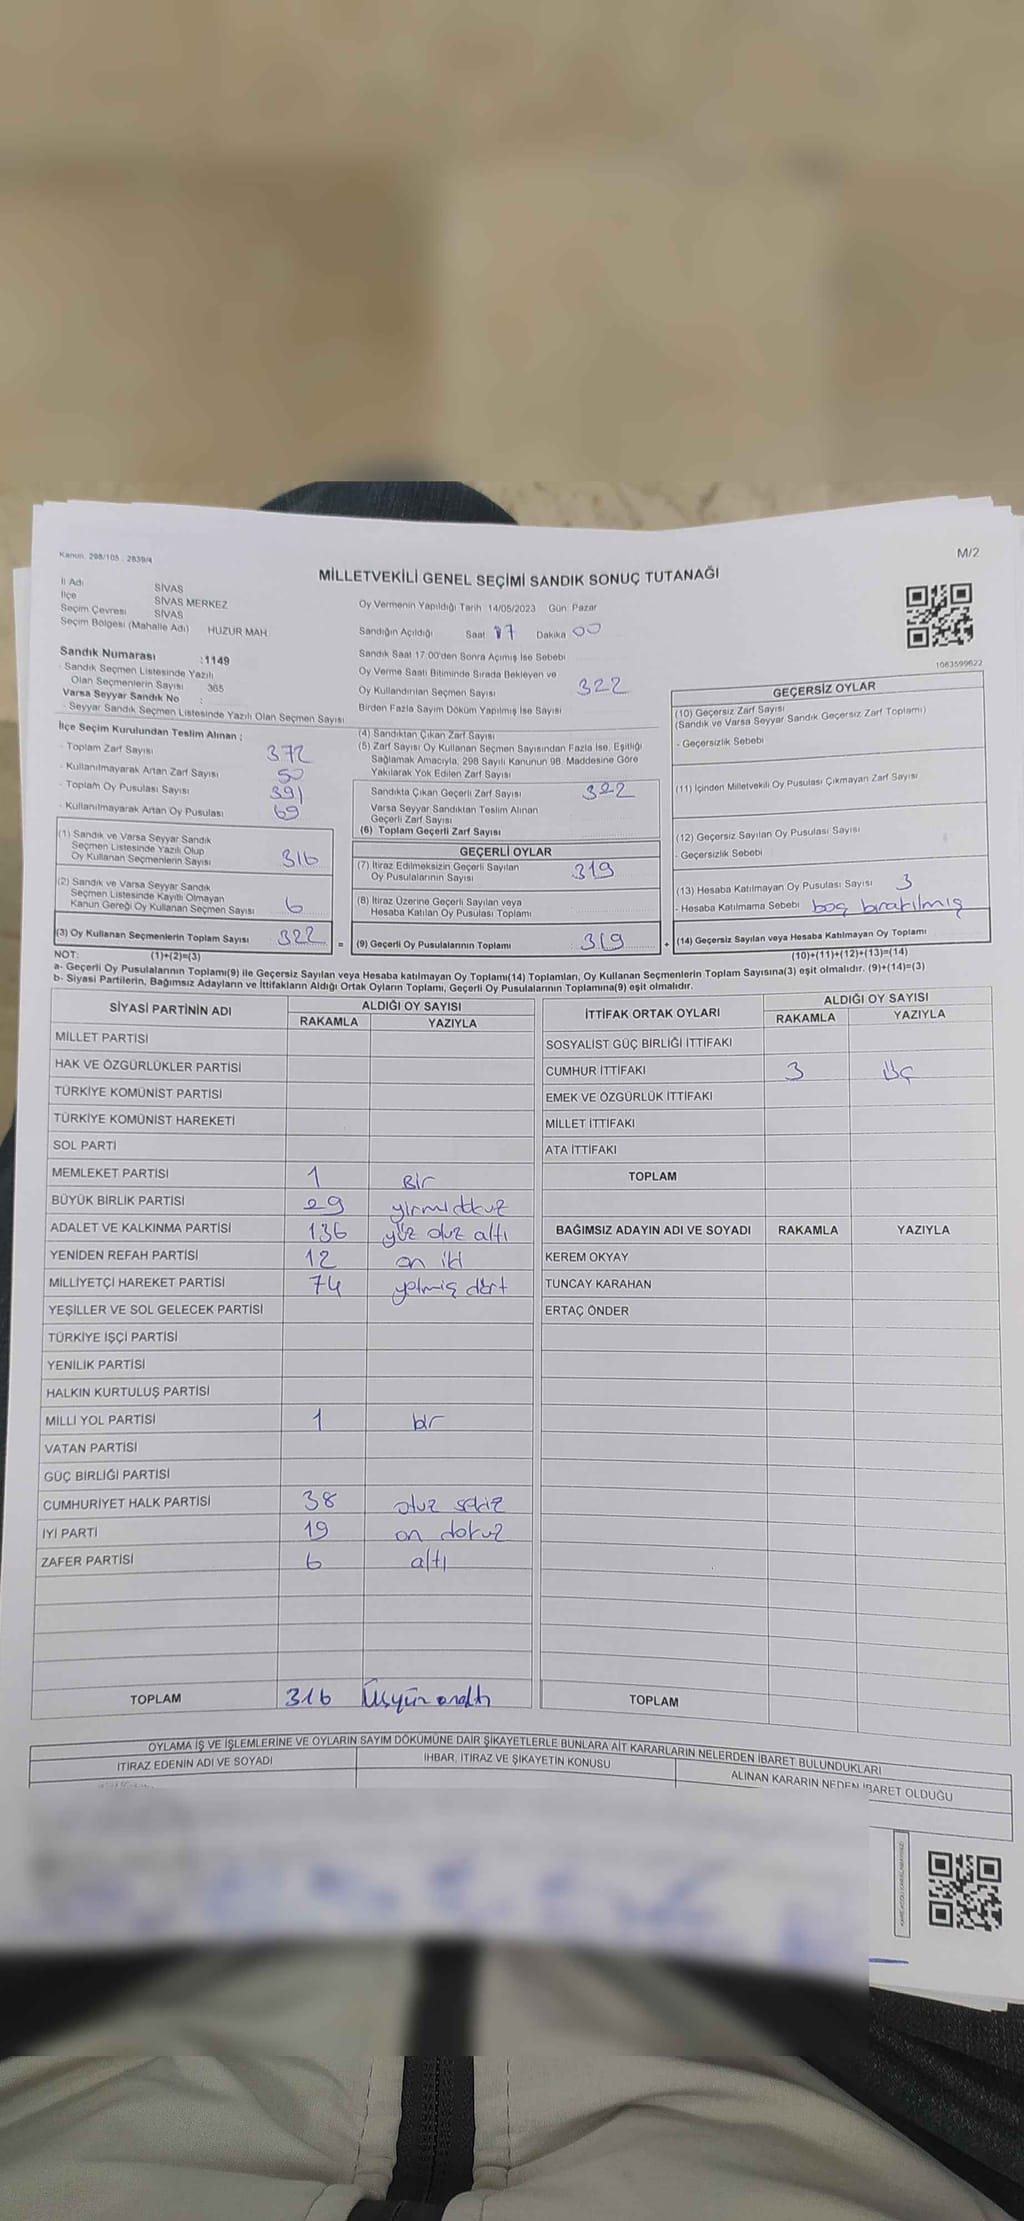 Kanun. 298/105 . 2839/4
M/2
MİLLETVEKİLİ GENEL SEÇİMİ SANDIK SONUÇ TUTANAĞI
İl Adı SİVAS
İlçe SİVAS MERKEZ
Seçim Çevresi SİVAS
Seçim Bölgesi (Mahalle Adı) HUZUR MAH.
Oy Vermenin Yapıldığı Tarih 14/05/2023 Gün: Pazar
Sandığın Açıldığı Saat 17 Dakika 00
Sandık Saat 17:00'den Sonra Açımış İse Sebebi
Oy Verme Saati Bitiminde Sırada Bekleyen ve
Oy Kullandırılan Seçmen Sayısı 322
Birden Fazla Sayım Döküm Yapılmış İse Sayısı
1063599622
Sandık Numarası :1149
- Sandık Seçmen Listesinde Yazılı
Olan Seçmenlerin Sayısı 365
Varsa Seyyar Sandık No :
- Seyyar Sandık Seçmen Listesinde Yazılı Olan Seçmen Sayısı
İlçe Seçim Kurulundan Teslim Alınan ;
- Toplam Zarf Sayısı 372
- Kullanılmayarak Artan Zarf Sayısı 50
- Toplam Oy Pusulası Sayısı 391
- Kullanılmayarak Artan Oy Pusulası 69
(1) Sandık ve Varsa Seyyar Sandık
Seçmen Listesinde Yazılı Olup
Oy Kullanan Seçmenlerin Sayısı 316
(2) Sandık ve Varsa Seyyar Sandık
Seçmen Listesinde Kayıtlı Olmayan
Kanun Gereği Oy Kullanan Seçmen Sayısı 6
(3) Oy Kullanan Seçmenlerin Toplam Sayısı 322 =
(4) Sandıktan Çıkan Zarf Sayısı
(5) Zarf Sayısı Oy Kullanan Seçmen Sayısından Fazla İse, Eşitliği
Sağlamak Amacıyla, 298 Sayılı Kanunun 98. Maddesine Göre
Yakılarak Yok Edilen Zarf Sayısı
Sandıkta Çıkan Geçerli Zarf Sayısı 322
Varsa Seyyar Sandıktan Teslim Alınan
Geçerli Zarf Sayısı
(6) Toplam Geçerli Zarf Sayısı
GEÇERLİ OYLAR
(7) İtiraz Edilmeksizin Geçerli Sayılan
Oy Pusulalarının Sayısı 319
(8) İtiraz Üzerine Geçerli Sayılan veya
Hesaba Katılan Oy Pusulası Toplamı
(9) Geçerli Oy Pusulalarının Toplamı 319 +
GEÇERSİZ OYLAR
(10) Geçersiz Zarf Sayısı
(Sandık ve Varsa Seyyar Sandık Geçersiz Zarf Toplamı)
- Geçersizlik Sebebi
(11) İçinden Milletvekili Oy Pusulası Çıkmayan Zarf Sayısı
(12) Geçersiz Sayılan Oy Pusulası Sayısı
- Geçersizlik Sebebi
(13) Hesaba Katılmayan Oy Pusulası Sayısı 3
- Hesaba Katılmama Sebebi boş bırakılmış
(14) Geçersiz Sayılan veya Hesaba Katılmayan Oy Toplamı
NOT: (1)+(2)=(3)
(10)+(11)+(12)+(13)=(14)
a- Geçerli Oy Pusulalarının Toplamı(9) ile Geçersiz Sayılan veya Hesaba katılmayan Oy Toplamı(14) Toplamları, Oy Kullanan Seçmenlerin Toplam Sayısına(3) eşit olmalıdır. (9)+(14)=(3)
b- Siyasi Partilerin, Bağımsız Adayların ve İttifakların Aldığı Ortak Oyların Toplamı, Geçerli Oy Pusulalarının Toplamına(9) eşit olmalıdır.
SİYASİ PARTİNİN ADI ALDIĞI OY SAYISI
RAKAMLA YAZIYLA
MİLLET PARTİSİ
HAK VE ÖZGÜRLÜKLER PARTİSİ
TÜRKİYE KOMÜNİST PARTİSİ
TÜRKİYE KOMÜNİST HAREKETİ
SOL PARTİ
MEMLEKET PARTİSİ 1 Bir
BÜYÜK BİRLİK PARTİSİ 29 yirmidokuz
ADALET VE KALKINMA PARTİSİ 136 yüz otuz altı
YENİDEN REFAH PARTİSİ 12 on iki
MİLLİYETÇİ HAREKET PARTİSİ 74 yetmiş dört
YEŞİLLER VE SOL GELECEK PARTİSİ
TÜRKİYE İŞÇİ PARTİSİ
YENİLİK PARTİSİ
HALKIN KURTULUŞ PARTİSİ
MİLLİ YOL PARTİSİ 1 bir
VATAN PARTİSİ
GÜÇ BİRLİĞİ PARTİSİ
CUMHURİYET HALK PARTİSİ 38 otuz sekiz
İYİ PARTİ 19 on dokuz
ZAFER PARTİSİ 6 altı
TOPLAM 316 Üçyüz onaltı
İTTİFAK ORTAK OYLARI ALDIĞI OY SAYISI
RAKAMLA YAZIYLA
SOSYALİST GÜÇ BİRLİĞİ İTTİFAKI
CUMHUR İTTİFAKI 3 üç
EMEK VE ÖZGÜRLÜK İTTİFAKI
MİLLET İTTİFAKI
ATA İTTİFAKI
TOPLAM
BAĞIMSIZ ADAYIN ADI VE SOYADI RAKAMLA YAZIYLA
KEREM OKYAY
TUNCAY KARAHAN
ERTAÇ ÖNDER
TOPLAM
OYLAMA İŞ VE İŞLEMLERİNE VE OYLARIN SAYIM DÖKÜMÜNE DAİR ŞİKAYETLERLE BUNLARA AİT KARARLARIN NELERDEN İBARET BULUNDUKLARI
İTİRAZ EDENİN ADI VE SOYADI İHBAR, İTİRAZ VE ŞİKAYETİN KONUSU ALINAN KARARIN NEDEN İBARET OLDUĞU